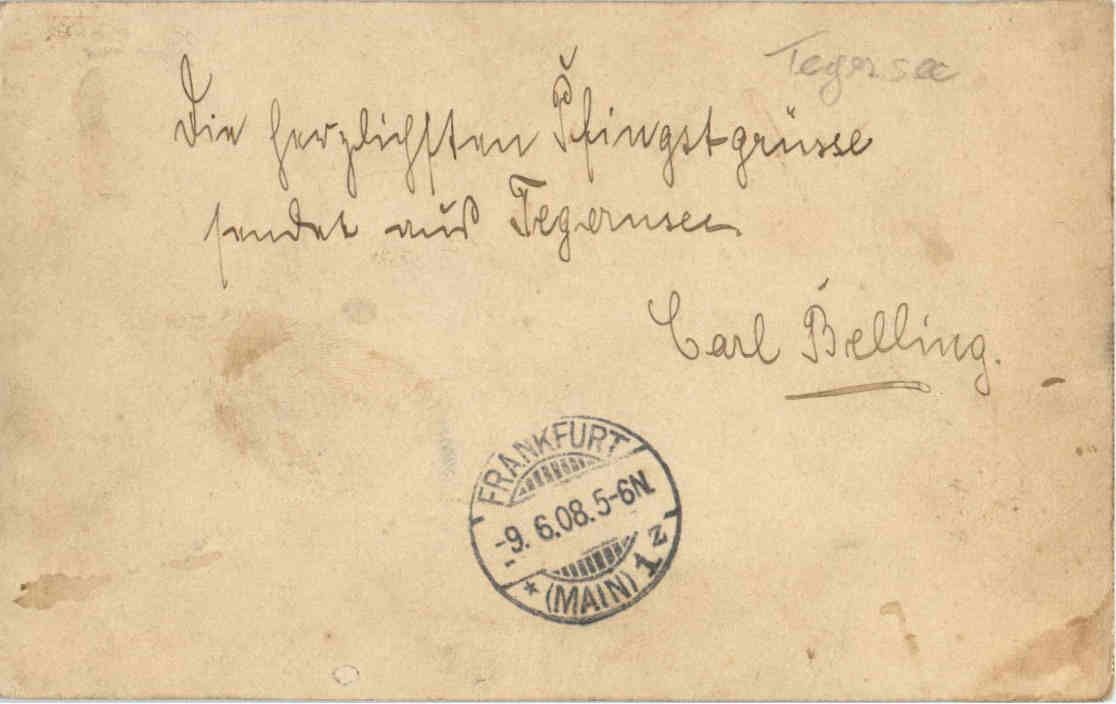 Tegersee
Die herzlichsten Pfingstgrüsse
sendet aus Tegernsee
Carl Belling.
FRANKFURT
-9.6.08.5-6N.
* (MAIN) 1z